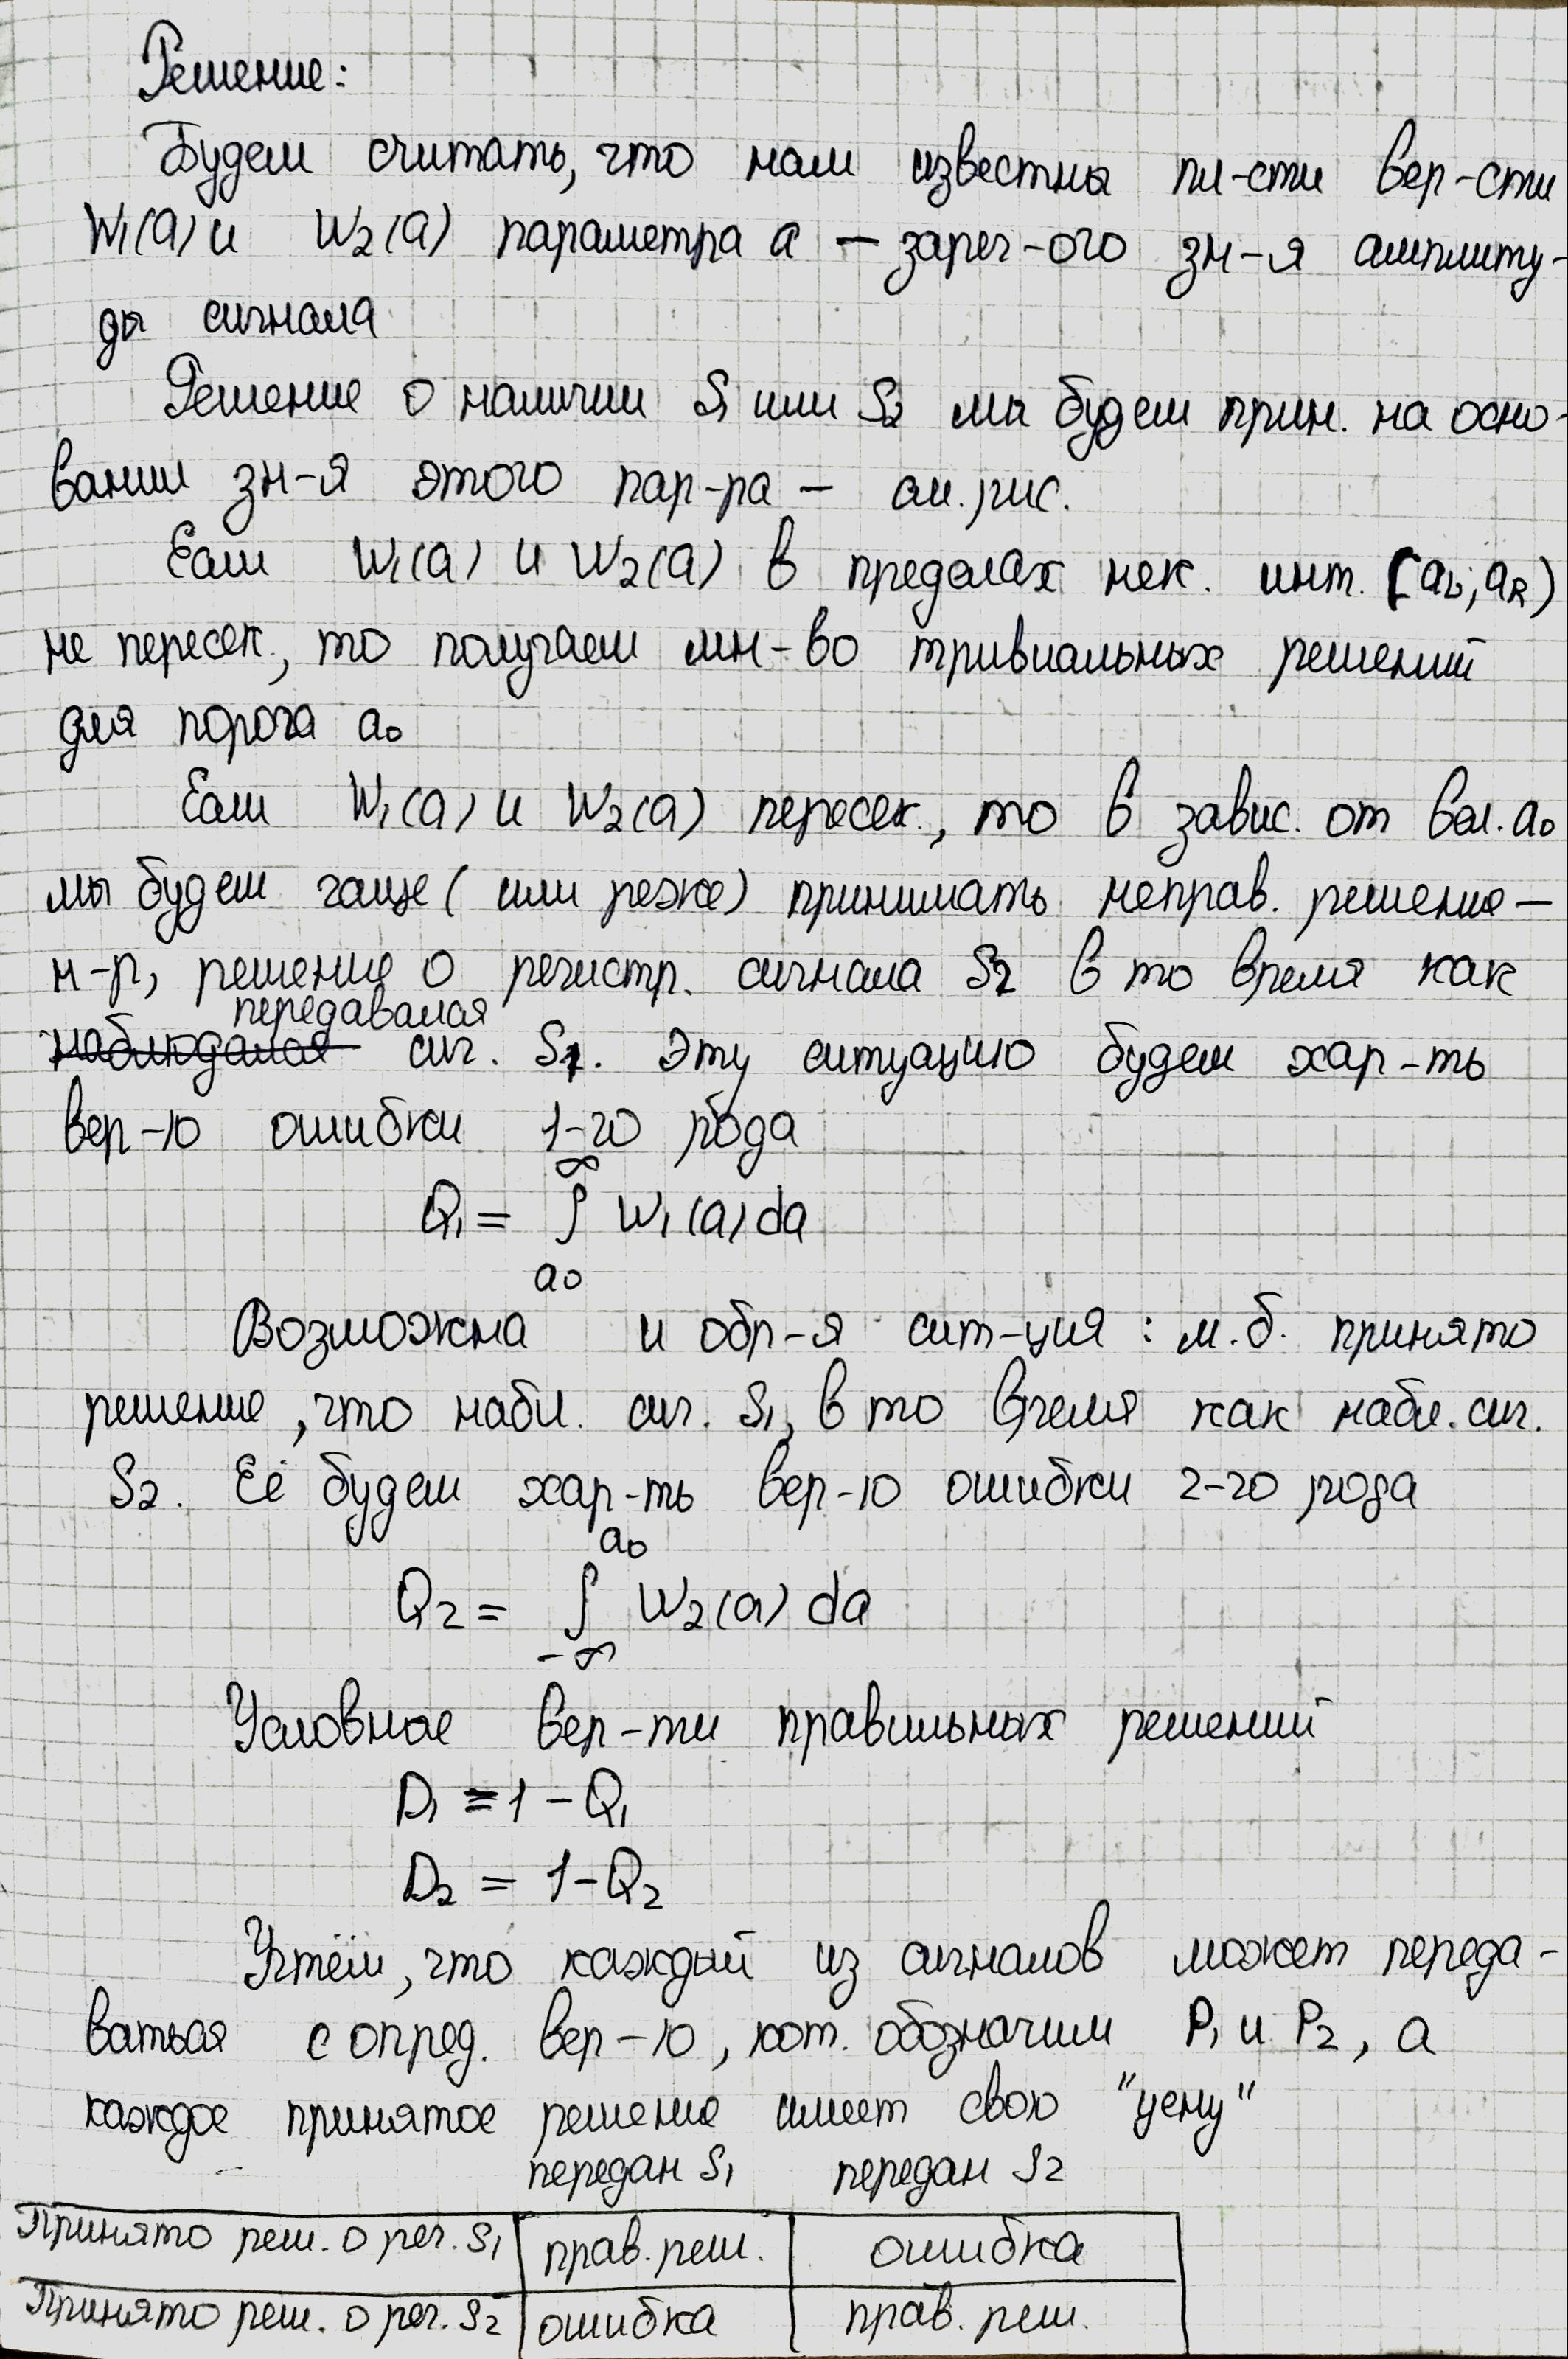 Решение:
Будем считать, что нам известны пл-сти вер-сти
W₁(a) и W₂(a) параметра a – зарег-ого зн-я амплиту-
ды сигнала
Решение о наличии S₁ или S₂ мы будем прин. на осно-
вании зн-я этого пар-ра – см. рис.
Если W₁(a) и W₂(a) в пределах нек. инт. (a_L; a_R)
не пересек., то получаем мн-во тривиальных решений
для порога a₀
Если W₁(a) и W₂(a) пересек., то в завис. от вел. a₀
мы будем чаще (или реже) принимать неправ. решение –
н-р, решение о регистр. сигнала S₂ в то время как
передавался
наблюдался сиг. S₁. Эту ситуацию будем хар-ть
вер-ю ошибки 1-го рода
Q₁ = ∫_{a₀}^{∞} W₁(a) da
Возможна и обр-я сит-ция: м.б. принято
решение, что набл. сиг. S₁, в то время как набл. сиг.
S₂. Её будем хар-ть вер-ю ошибки 2-го рода
Q₂ = ∫_{-∞}^{a₀} W₂(a) da
Условные вер-ти правильных решений
D₁ = 1 – Q₁
D₂ = 1 – Q₂
Учтём, что каждый из сигналов может переда-
ваться с опред. вер-ю, кот. обозначим P₁ и P₂, а
каждое принятое решение имеет свою "цену"
передан S₁ передан S₂
Принято реш. о рег. S₁ прав. реш. ошибка
Принято реш. о рег. S₂ ошибка прав. реш.